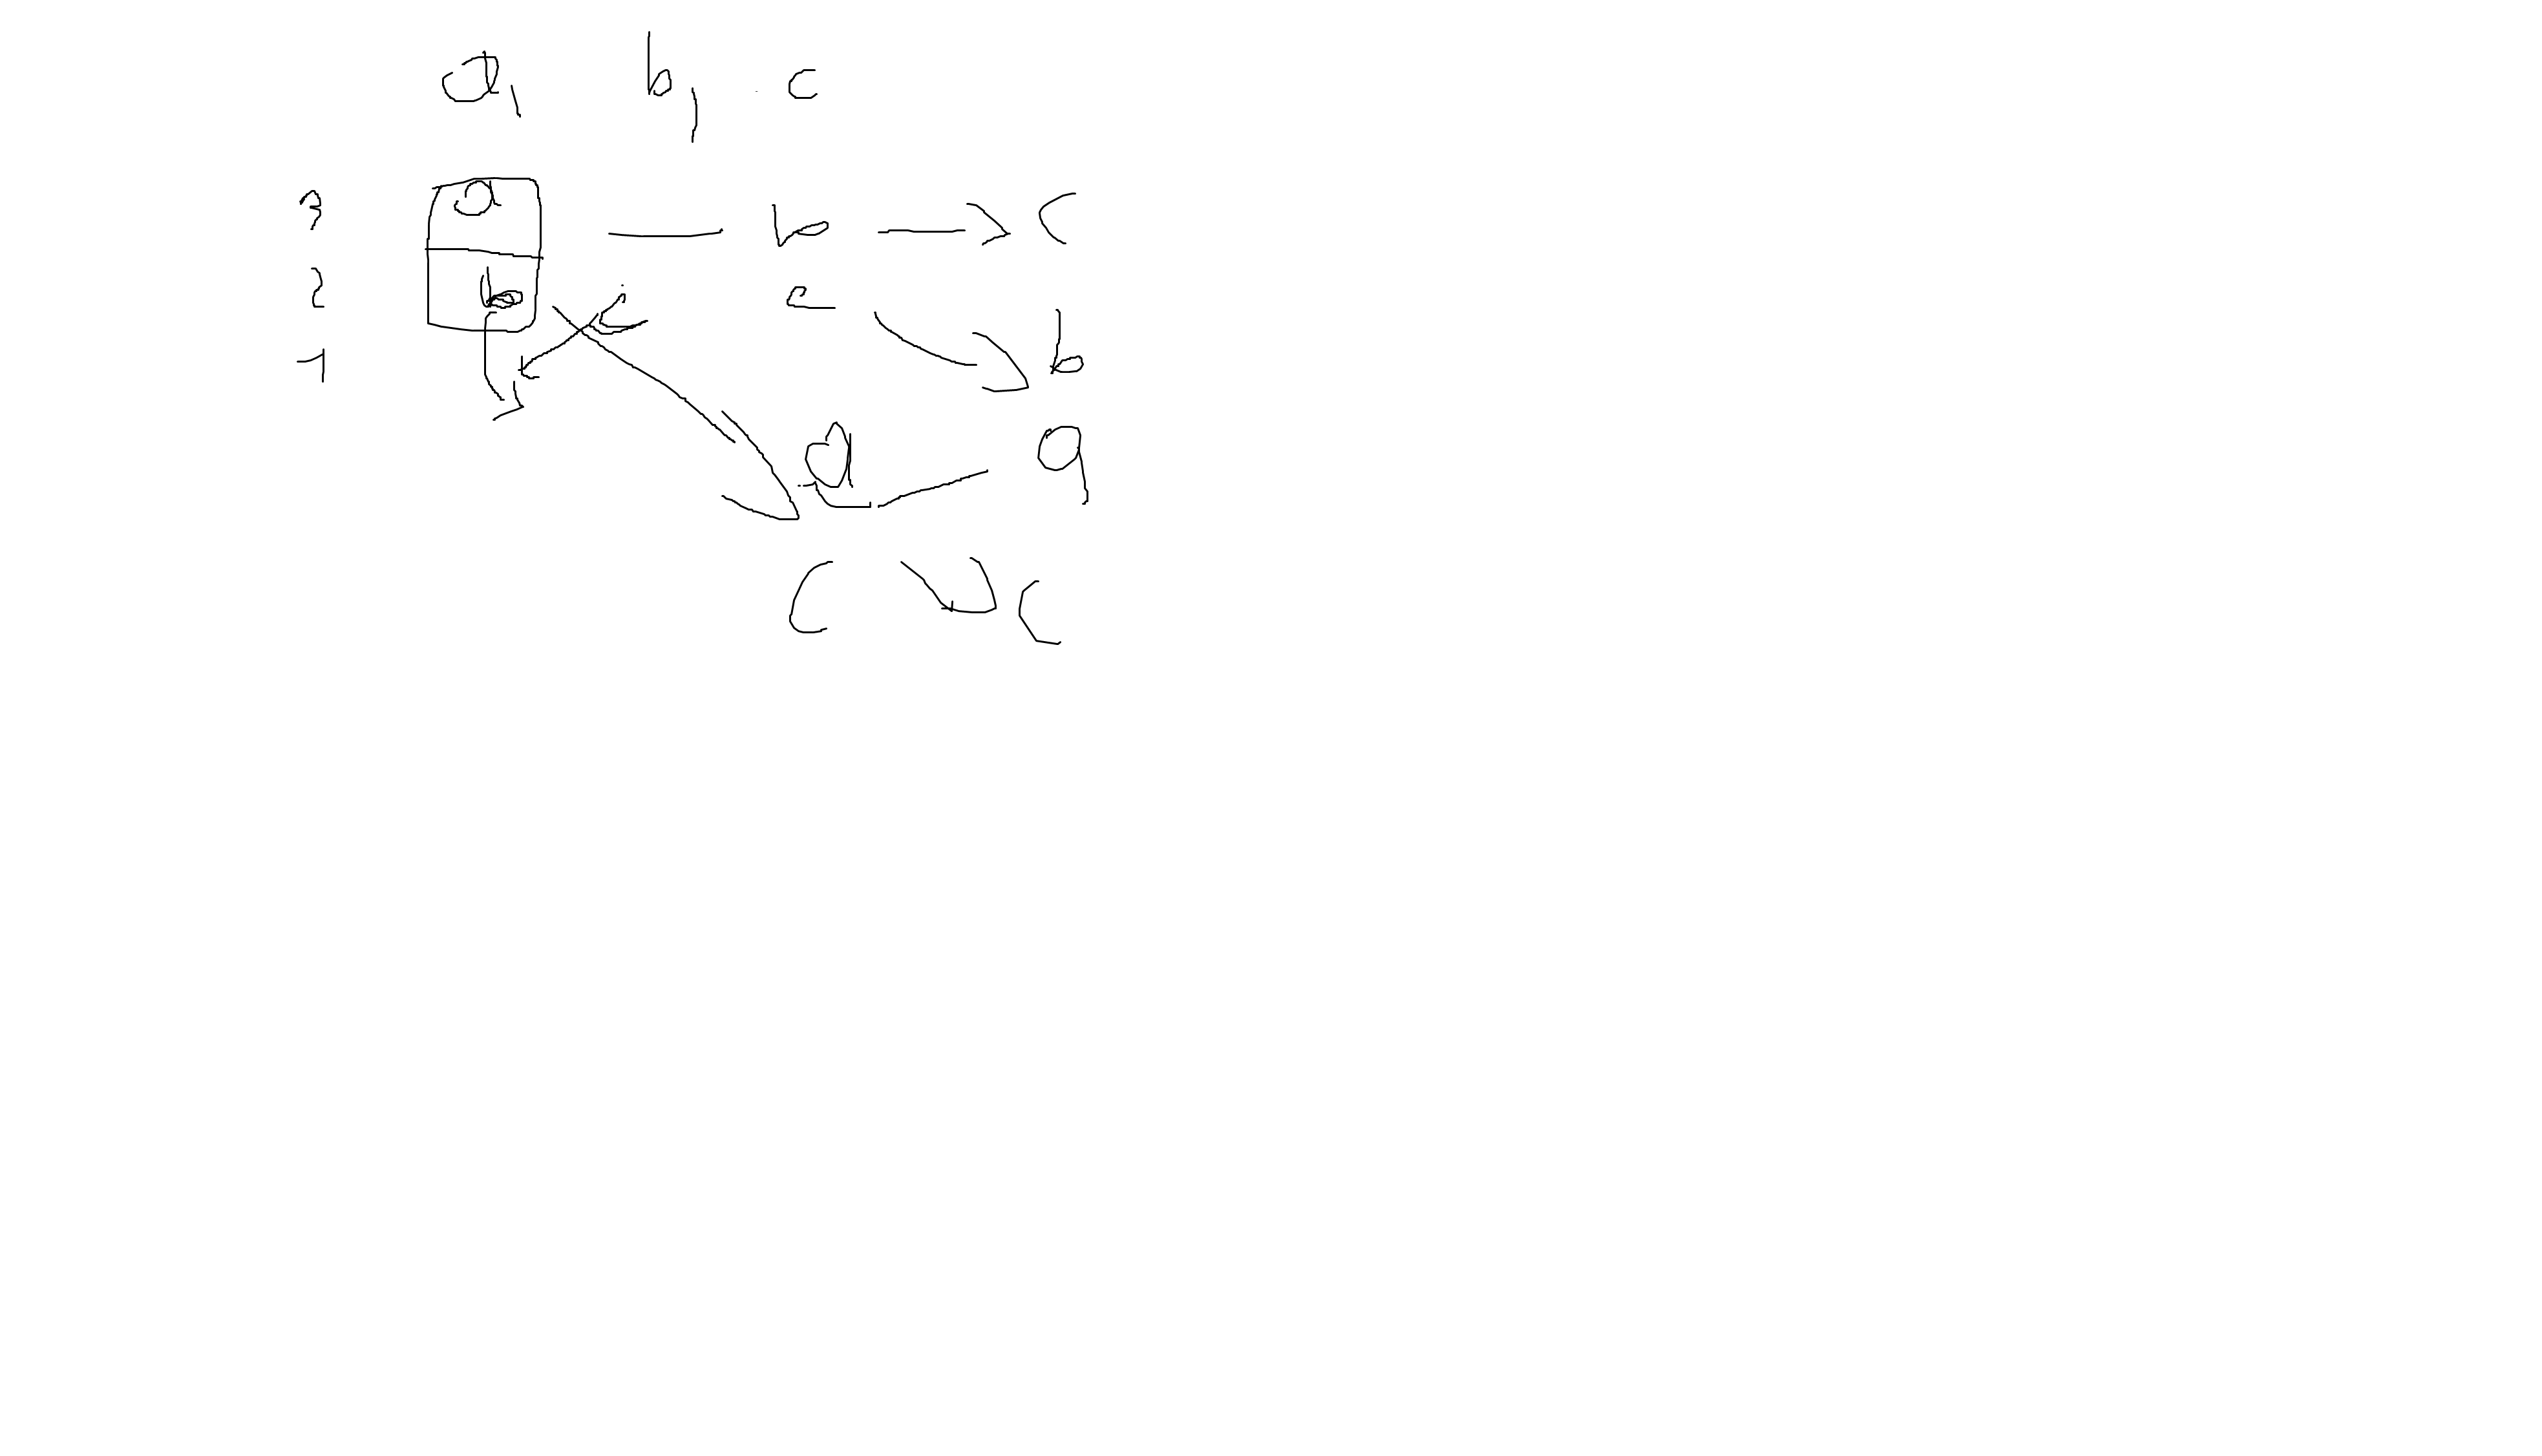 a, b, c
3 a b c
2 b c c b
1
a a
c c